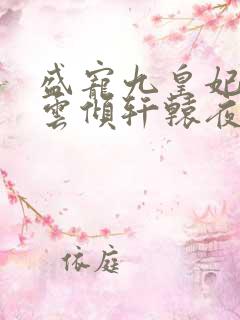 盛寵九皇妃
雲傾軒轅夜
依庭